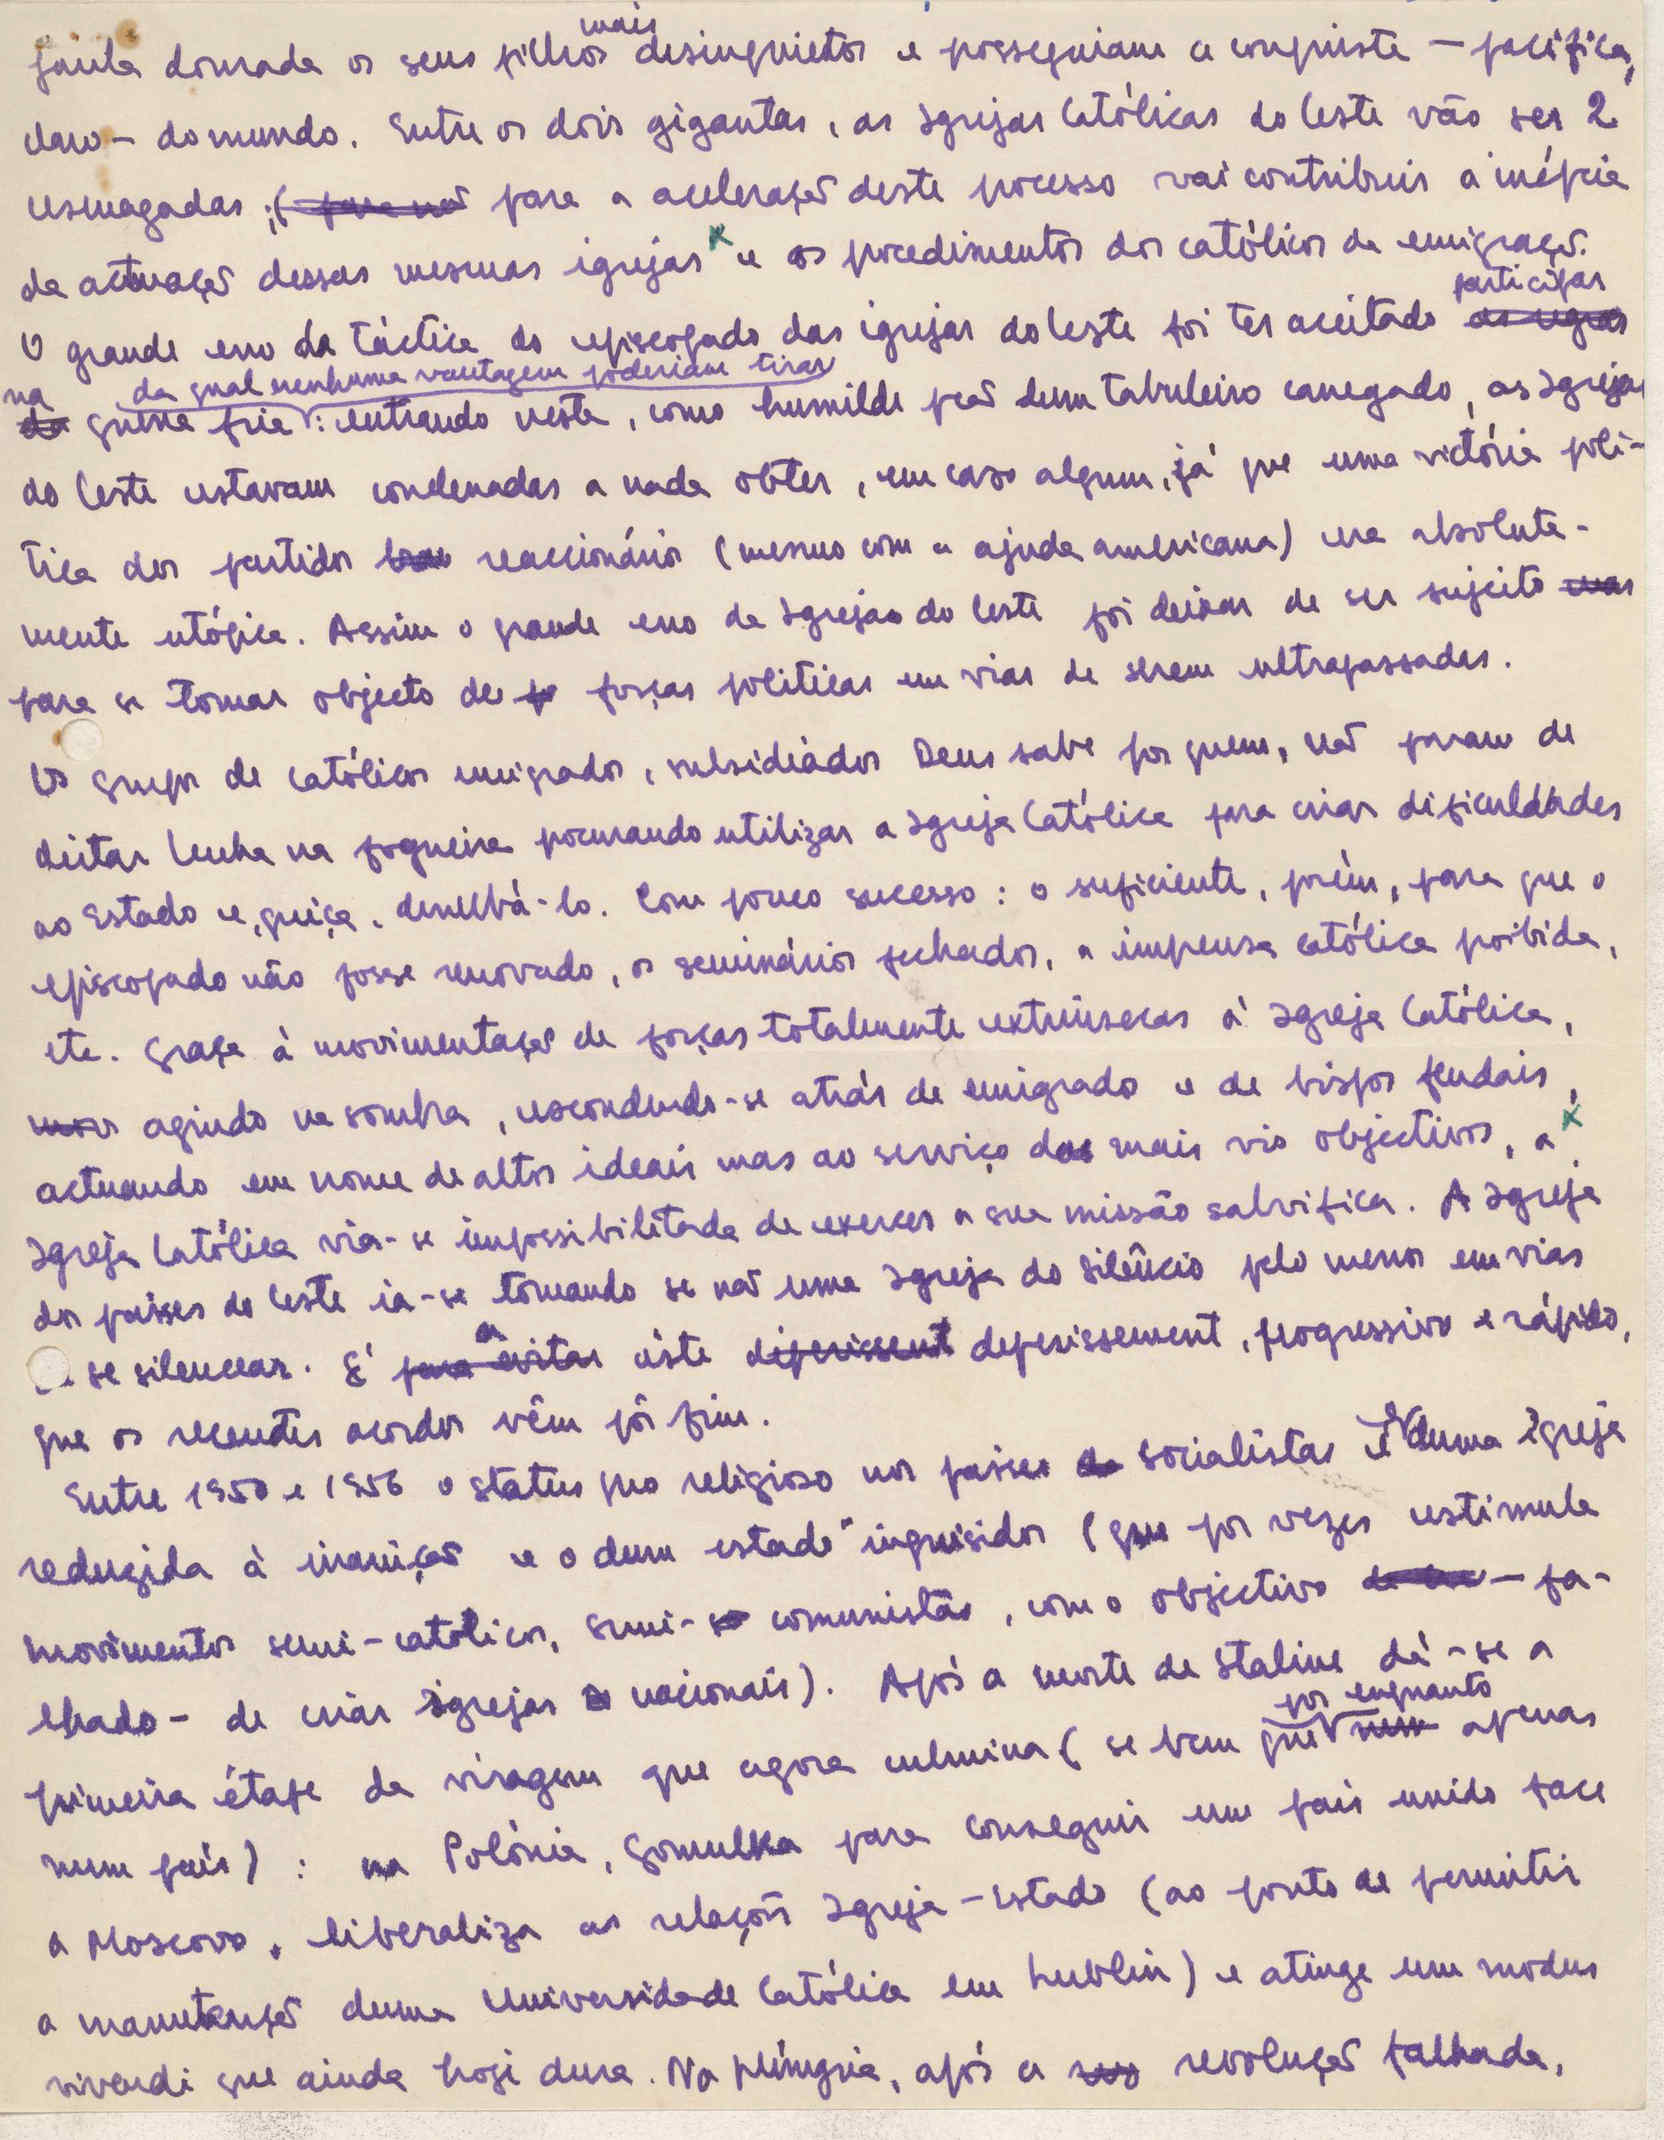 mais
jaula dourada os seus filhos desinquietos e prosseguiam a conquista — pacífica,
claro — do mundo. Entre os dois gigantes, as Igrejas Católicas do leste vão ser 2
esmagadas; (para não para a aceleração deste processo vai contribuir a inépcia
da actuação dessas mesmas igrejas x e os procedimentos dos católicos da emigração.
participar
O grande erro da táctica do episcopado das igrejas do leste foi ter aceitado as regras
na da qual nenhuma vantagem poderiam tirar
da guerra fria: entrando neste, como humilde peão dum tabuleiro carregado, as Igrejas
do leste estavam condenadas a nada obter, em caso algum, já que uma victória polí-
tica dos partidos reaccionários (mesmo com a ajuda americana) era absoluta-
mente utópica. Assim o grande erro da Igrejas do leste foi deixar de ser sujeito mas
para se tornar objecto de forças políticas em vias de serem ultrapassadas.
Os grupos de católicos emigrados, subsidiádos Deus sabe por quem, não param de
deitar lenha na fogueira procurando utilizar a Igreja Católica para criar dificuldades
ao Estado e, quiçá, derrubá-lo. Com pouco sucesso: o suficiente, porém, para que o
episcopado não fosse renovado, os seminários fechados, a imprensa católica proibida,
etc. Graça à movimentação de forças totalmente extrínsecas à Igreja Católica,
agindo na sombra, escondendo-se atrás de emigrado e de bispos feudais,
actuando em nome de altos ideais mas ao serviço dos mais vis objectivos, a x
Igreja Católica via-se impossibilitada de exercer a sua missão salvífica. A Igreja
dos países do leste ia-se tornando se não uma Igreja do Silêncio pelo menos em vias
a
de se silenciar. É para evitar êste dipérissent depérissement, progressivo e rápido,
que os recentes acordos vêm pôr fim.
Entre 1950 e 1956 o status quo religioso nos países da socialistas é o duma Igreja
reduzida à inanição e o dum estado inquisidor (que por vezes estimula
movimentos semi-católicos, semi- comunistas, com o objectivo — fa-
lhado — de criar Igrejas nacionais). Após a morte de Staline dá-se a
por enquanto
primeira étape da viragem que agora culmina (se bem que num apenas
num país): na Polónia, Gomulka para conseguir um país unido face
a Moscovo, liberaliza as relações Igreja-Estado (ao ponto de permitir
a manutenção duma Universidade Católica em Lublin) e atinge um modus
vivendi que ainda hoje dura. Na Hungria, após a revolução falhada,